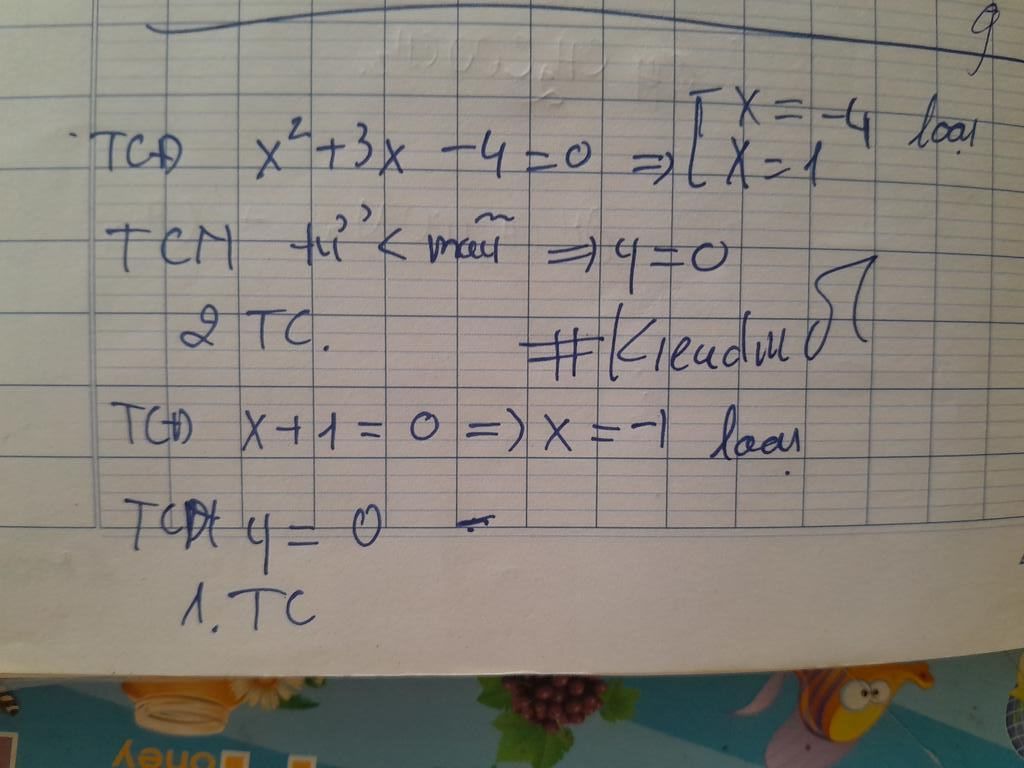 9
TCĐ x² + 3x - 4 = 0 => [ x = -4 loại
x = 1
TCN tử < mẫu => y = 0
2 TC.
TCĐ x + 1 = 0 => x = -1 loại
y = 0
1. TC
oney